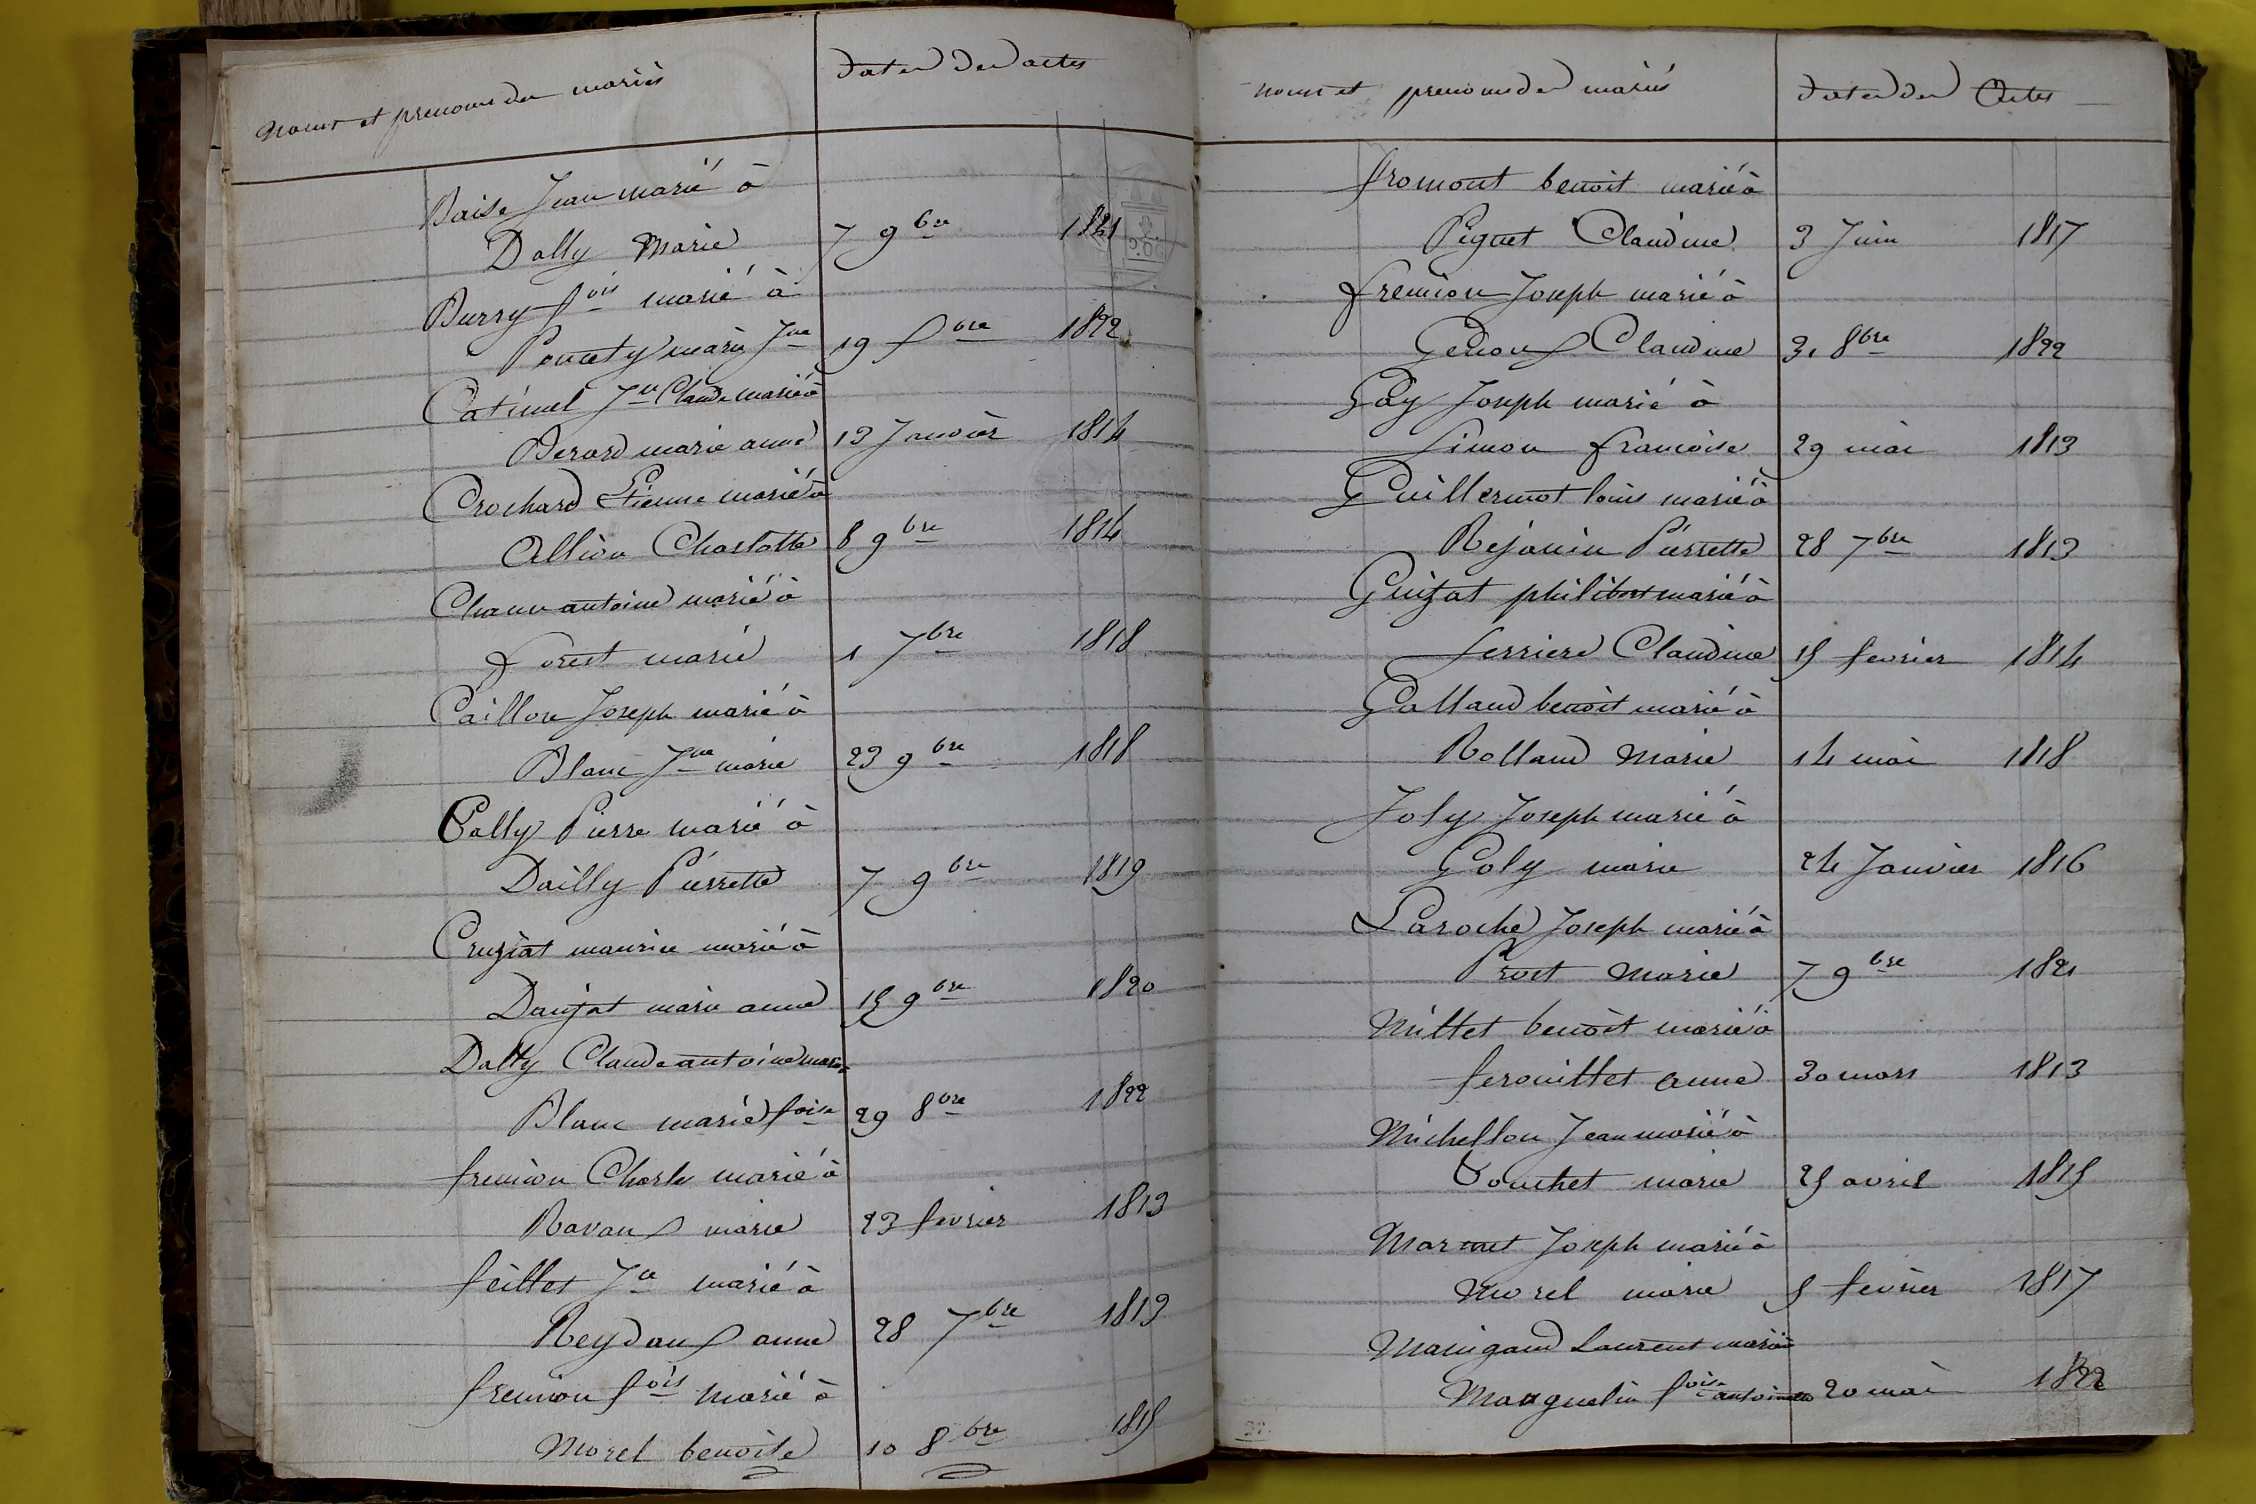 noms et prenoms des mariés
dates des actes
Baise Jean marié à
Dally Marie 7 9bre 1821
Burry fois marié à
Poncety marie Jne 19 1822
Catimel Jn Claude marié à
Berard marie anne 13 Janvier 1814
Crochard Etienne marié à
Allion Charlotte 8 9bre 1814
Chanu antoine marié à
forest marie 1 7bre 1818
Caillon Joseph marié à
Blanc Jne marie 23 9bre 1818
Cally Pierre marié à
Dailly Pierrette 7 9bre 1819
Cruziat maurice marié à
Daujat marie anne 15 9bre 1820
Dally Claude antoine marié
Blanc marie foise 29 8bre 1822
fremion Charles marié à
Ravaux marie 23 fevrier 1813
feillet Jn marié à
Reydaux anne 28 7bre 1813
fremion fois marié à
Morel benoite 10 8bre 1815
noms et prenoms des mariés
dates des Actes
fromont benoit marié à
Piguet Claudine 3 Juin 1817
fremion Joseph marié à
Genoux Claudine 31 8bre 1822
Gay Joseph marié à
Simon francoise 29 mai 1813
Guillermot louis marié à
Rejanin Pierrette 28 7bre 1813
Guizat philibert marié à
ferriere Claudine 15 fevrier 1814
Galland benoit marié à
Rolland Marie 14 mai 1818
Joly Joseph marié à
Goly marie 24 Janvier 1816
Laroche Joseph marié à
Prost Marie 7 9bre 1821
Millet benoit marié à
ferouillet anne 30 mars 1813
Michellon Jean marié à
Bouchet marie 25 avril 1815
Marmet Joseph marié à
Morel marie 5 fevrier 1817
Maingaud Laurent marié à
Manguelin foise antoinette 20 mai 1822